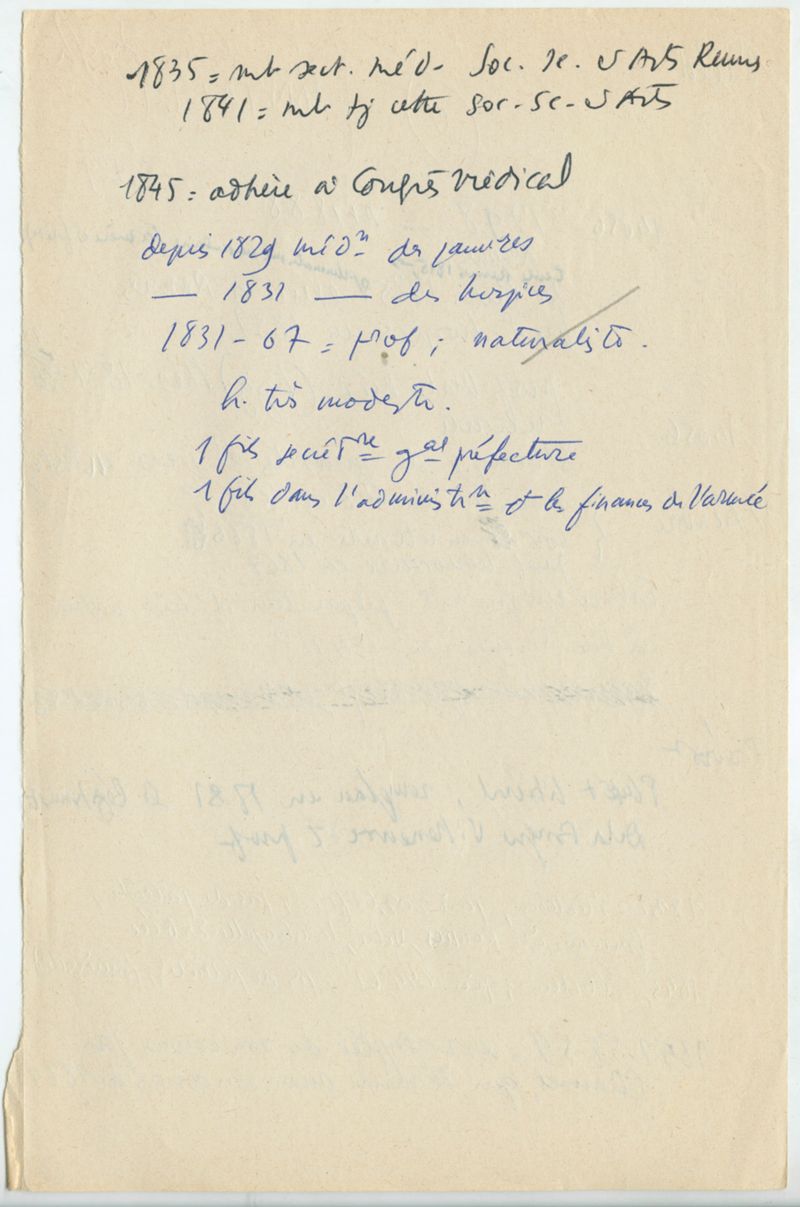 1835 = mb sect. méd. Soc. Sc. & Arts Rennes
1841 = mb tj cette Soc. Sc. & Arts
1845 = adhère à Congrès Médical
depuis 1829 médⁿ des pauvres
— 1831 — des hospices
1831 - 67 = prof ; naturaliste.
h. très modeste.
1 fils secrétʳᵉ gᵃˡ préfecture
1 fils dans l'administrⁿ et les finances de l'armée